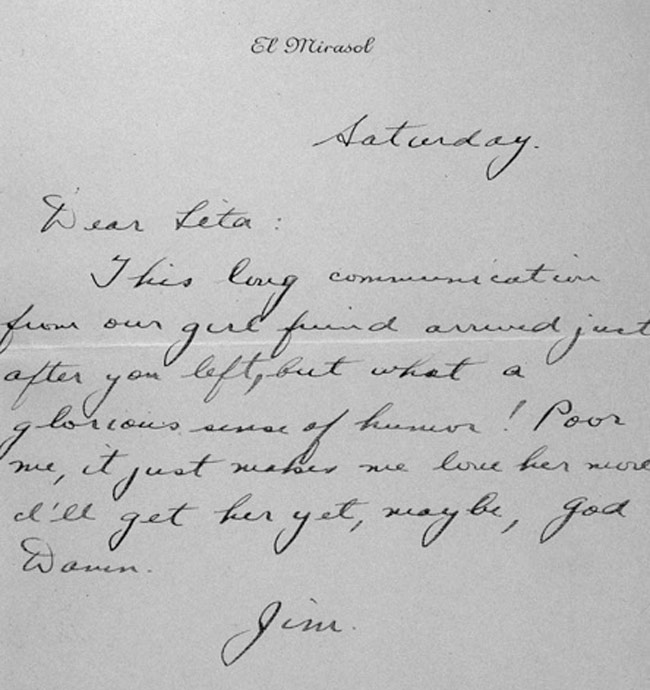 El Mirasol
Saturday.
Dear Lita:
This long communication
from our girl friend arrived just
after you left, but what a
glorious sense of humor! Poor
me, it just makes me love her more
I'll get her yet, maybe, God
Damn.
Jim.